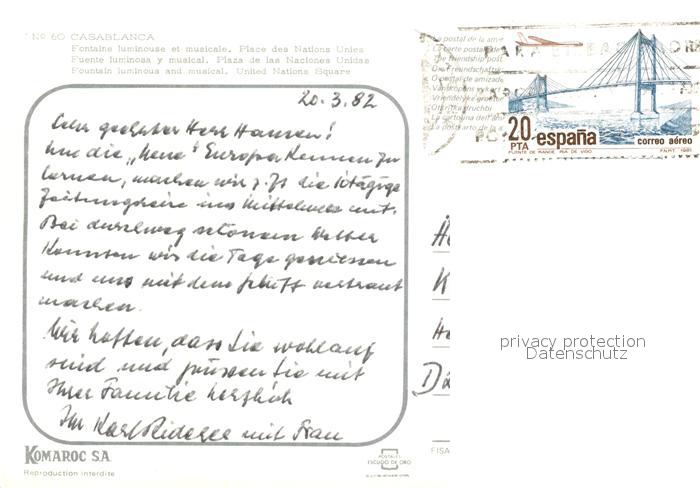 Nº 60 CASABLANCA
Fontaine lumineuse et musicale. Place des Nations Unies
Fuente luminosa y musical. Plaza de las Naciones Unidas
Fountain luminous and musical. United Nations Square
20.3.82
Sehr geehrter Herr Hansen!
Um die „Neue“ Europa kennen zu
lernen, machen wir z. Zt. die 10tägige
ins Mittelmeer mit.
Bei durchweg schönem Wetter
konnten wir die Tage geniessen
und uns mit dem Schiff vertraut
machen.
Wir hoffen, dass Sie wohlauf
sind und grüssen Sie mit
Ihrer Familie herzlich
Ihr Karl mit Frau
KOMAROC S.A.
Reproduction interdite
POSTALES
ESCUDO DE ORO
FISA
La postal de la
La carte postale de
The friendship post
Die Freundschafts
O postal de amizade
Vriendelijke groete
La cartolina dell'
20
PTA
españa
correo aéreo
PUENTE DE RANDE. RIA DE VIGO
F.N.M.T. 1981
PARA
privacy protection
Datenschutz